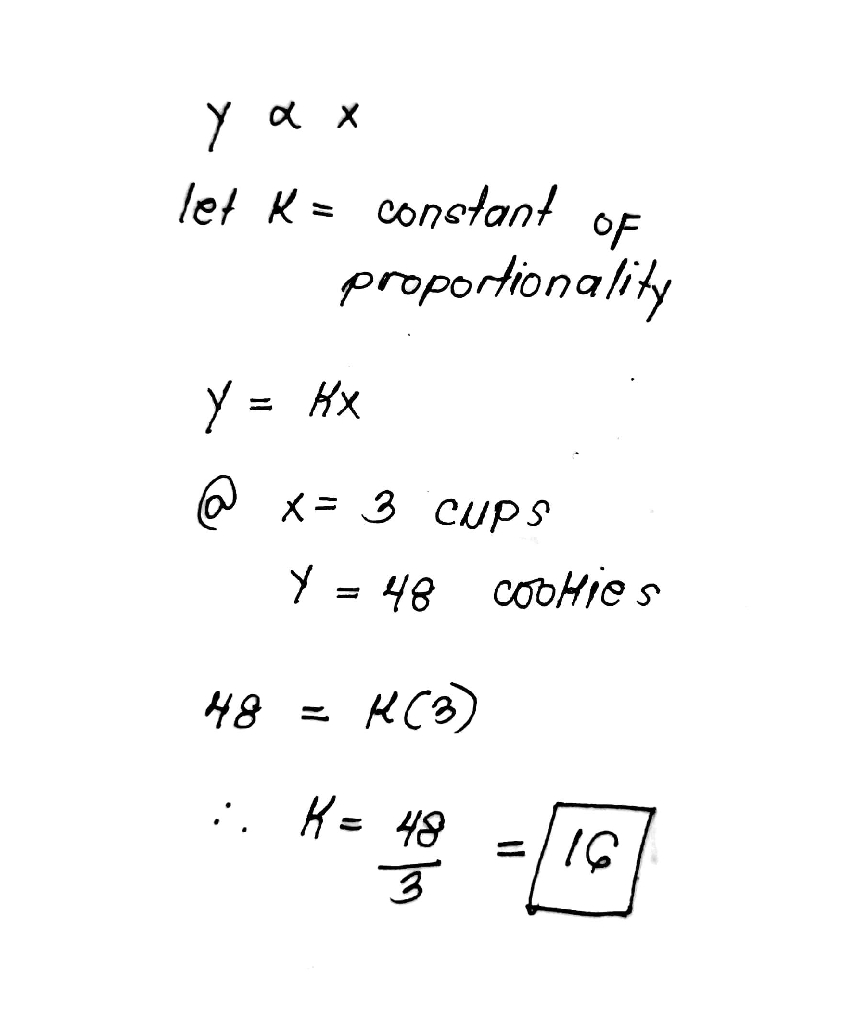 y ∝ x
let K = constant OF
proportionality
y = Kx
@ x = 3 cups
Y = 48 cookies
48 = K(3)
∴ K = 48/3 = 16